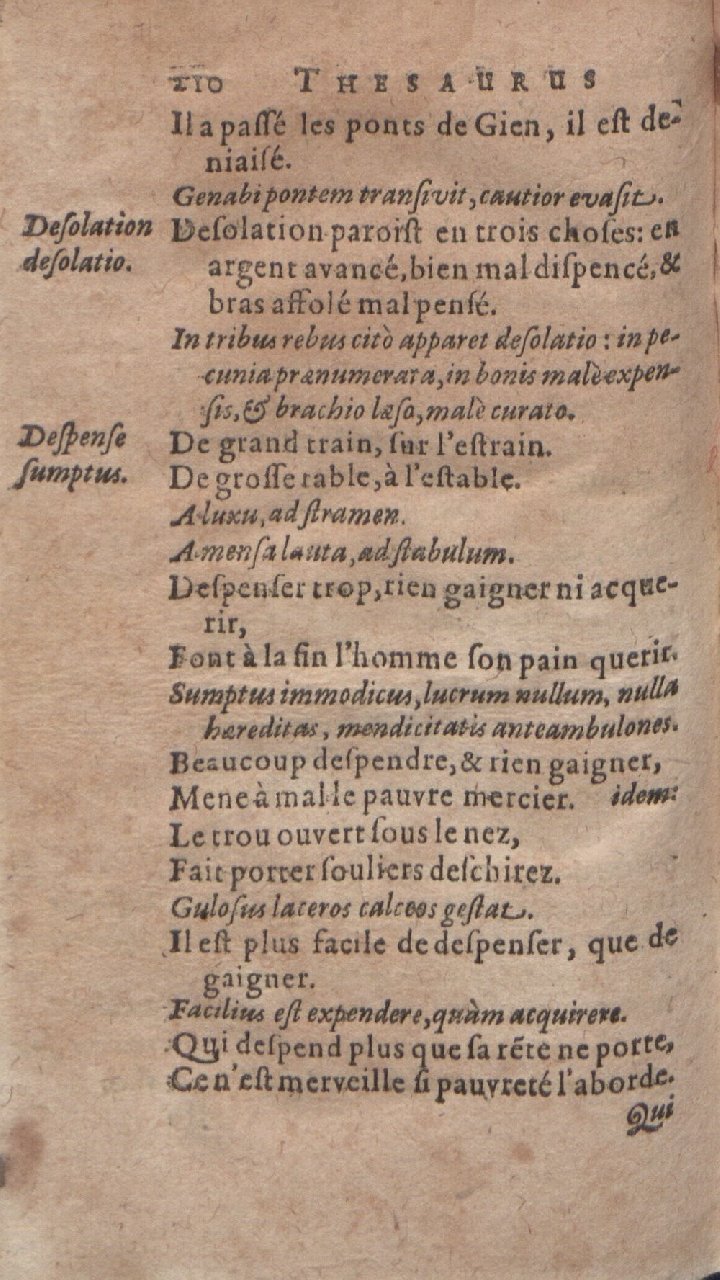 210 THESAURUS
Il a passé les ponts de Gien, il est de-
niaisé.
Genabi pontem transivit, cautior evasit.
Desolation
desolatio.
Desolation paroist en trois choses: en
argent avancé, bien mal dispencé, &
bras affolé mal pensé.
In tribus rebus citò apparet desolatio: in pe-
cunia prænumerata, in bonis malè expen-
sis, & brachio læso, malè curato.
Despense
sumptus.
De grand train, sur l'estrain.
De grosse table, à l'estable.
A luxu, ad stramen.
A mensa lauta, ad stabulum.
Despenser trop, rien gaigner ni acque-
rir,
Font à la fin l'homme son pain querir.
Sumptus immodicus, lucrum nullum, nulla
hæreditas, mendicitatis anteambulones.
Beaucoup despendre, & rien gaigner,
Mene à mal le pauvre mercier. idem:
Le trou ouvert sous le nez,
Fait porter souliers deschirez.
Gulosus laceros calceos gestat.
Il est plus facile de despenser, que de
gaigner.
Facilius est expendere, quàm acquirere.
Qui despend plus que sa rẽte ne porte,
Ce n'est merveille si pauvreté l'aborde.
Qui